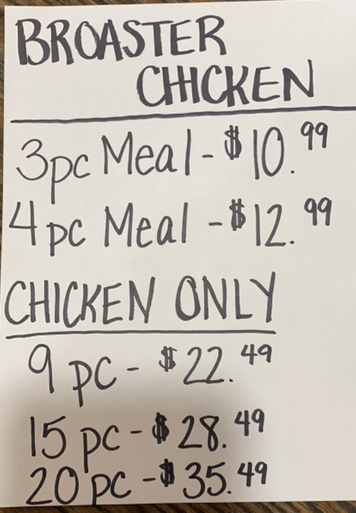 BROASTER
CHICKEN
3pc Meal - $10.99
4pc Meal - $12.99
CHICKEN ONLY
9 pc - $22.49
15 pc - $28.49
20 pc - $35.49